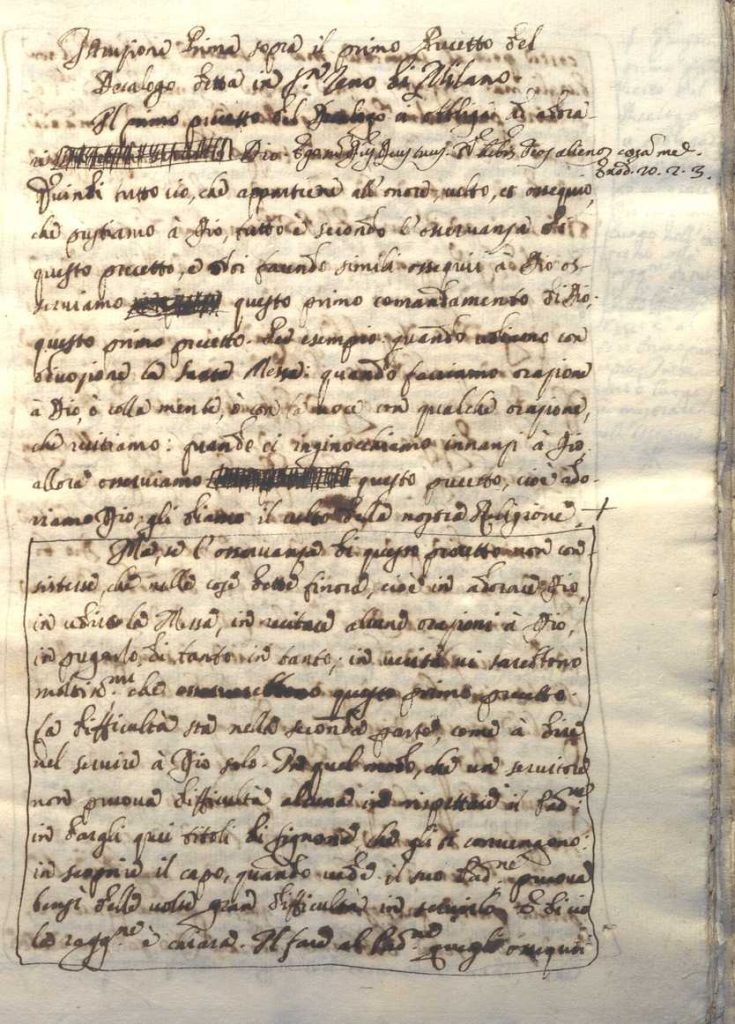 Istruzione Prima sopra il primo Precetto del
Decalogo detta in S.n Zeno di Milano.
Il primo precetto del Decalogo ci obbliga ad adora-
re Dio. Ego sum Dominus Deus tuus. Non habebis Deos alienos coram me.
Exod. 20. 2. 3.
Quindi tutto ciò, che appartiene all'onore, culto, et ossequio,
che prestiamo à Dio, tutto è secondo l'osservanza di
questo precetto, e noi facendo simili ossequii à Dio os-
serviamo questo primo comandamento di Dio,
questo primo precetto. Per esempio quando udiamo con
divozione la Santa Messa: quando facciamo orazione
à Dio, ò colla mente, ò con la voce con qualche orazione,
che recitiamo: quando ci inginocchiamo innanzi à Dio,
allora osserviamo questo precetto, cioè ado-
riamo Dio, gli diamo il culto della nostra Religione. +
Ma, se l'osservanza di questo precetto non con-
sistesse, che nelle cose dette finora, cioè in adorare Dio,
in udire la Messa, in recitare alcune orazioni à Dio,
in pregarlo di tanto in tanto, in verità vi sarebbono
moltiss.mi che osserverebbono questo primo precetto.
La difficultà stà nella seconda parte, come à dire
nel servire à Dio solo. In quel modo, che un servitore
non pruova difficultà alcuna in rispettare il Pad.ne
in dargli quei titoli di Signore, che gli si convengono:
in scoprire il capo, quando vede il suo Pad.ne pruova
bensì delle volte gran difficultà in servirlo. E di ciò
la ragg.ne è chiara. Il fare al Pad.ne quegli ossequii